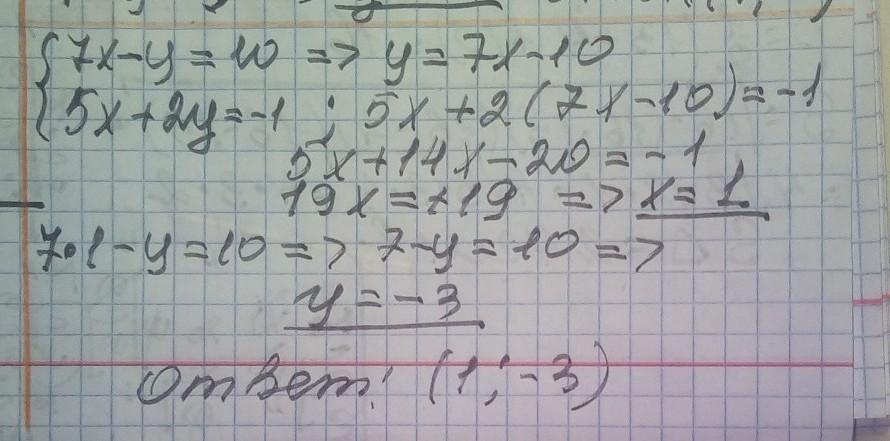 7x-y=10 => y=7x-10
5x+2y=-1 ; 5x+2(7x-10)=-1
5x+14x-20=-1
19x=+19 => x=1
7•1-y=10 => 7-y=10 =>
y=-3
Ответ: (1;-3)